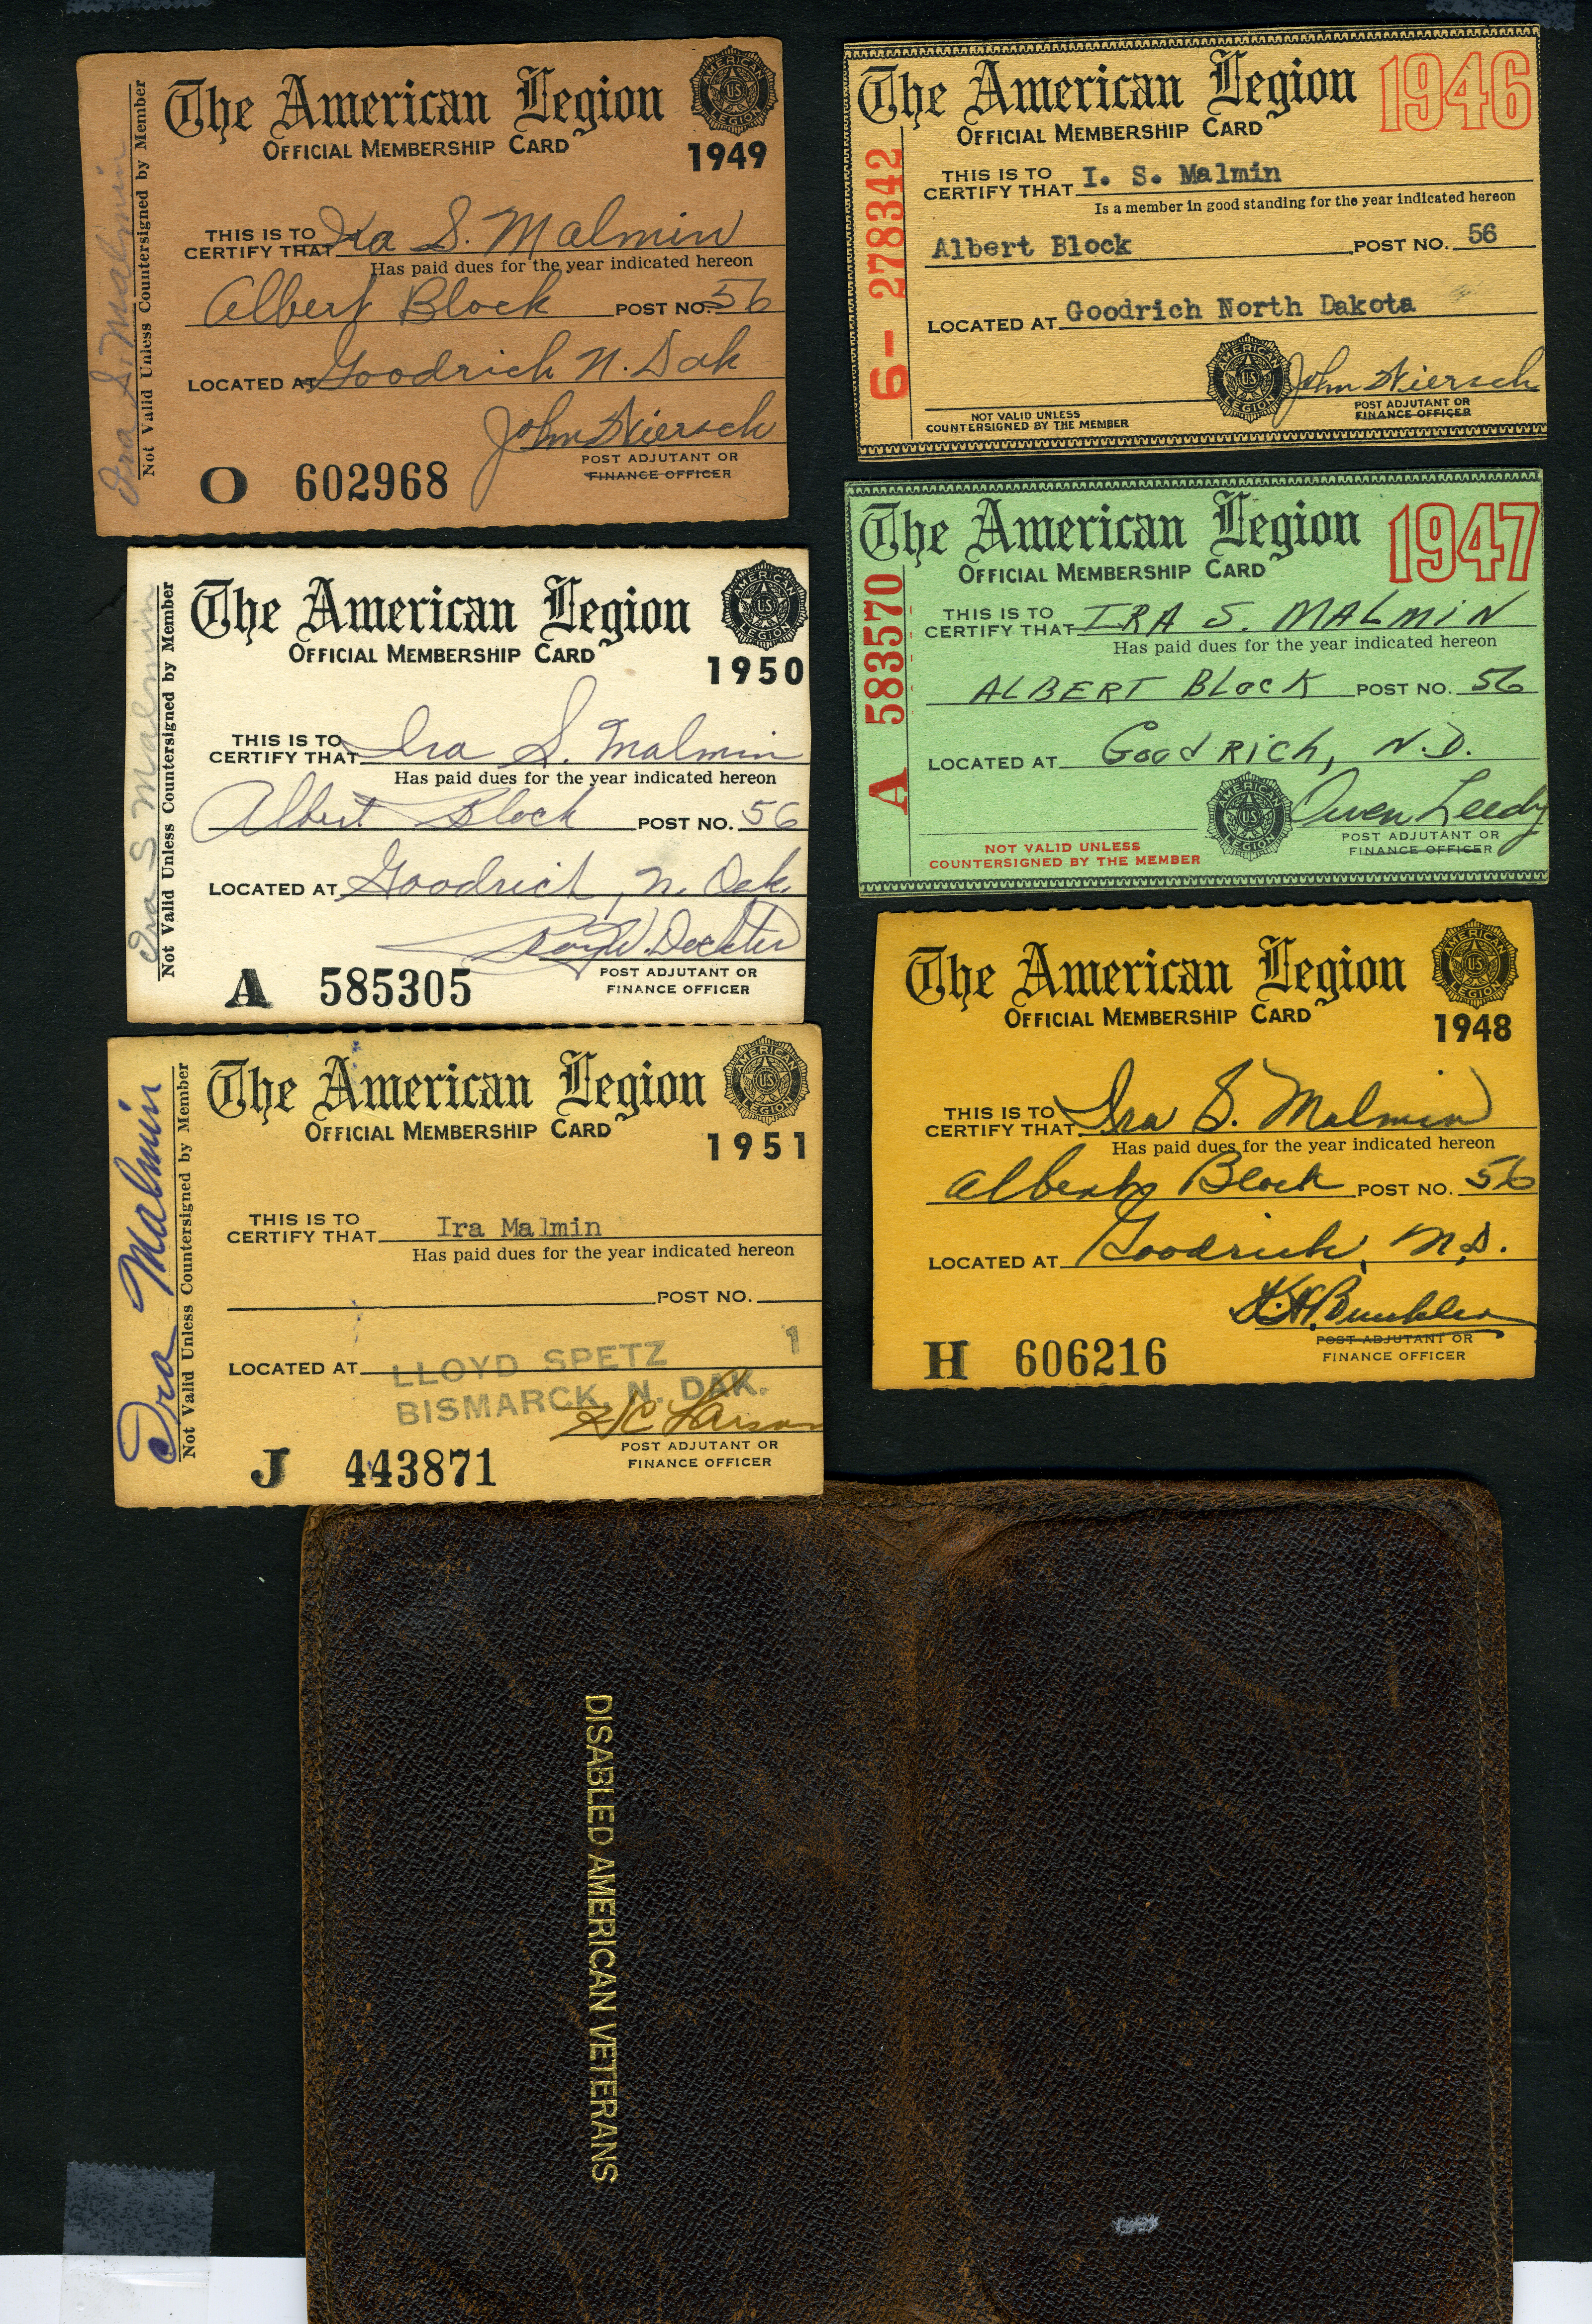 The American Legion
OFFICIAL MEMBERSHIP CARD
1949
THIS IS TO
CERTIFY THAT Ira S. Malmin
Has paid dues for the year indicated hereon
Albert Block POST NO. 56
LOCATED AT Goodrich N. Dak
John
POST ADJUTANT OR
FINANCE OFFICER
O 602968
Not Valid Unless Countersigned by Member
Ira S. Malmin
AMERICAN LEGION
US
The American Legion
OFFICIAL MEMBERSHIP CARD
1950
THIS IS TO
CERTIFY THAT Ira S. Malmin
Has paid dues for the year indicated hereon
Albert Block POST NO. 56
LOCATED AT Goodrich, N. Dak.
POST ADJUTANT OR
FINANCE OFFICER
A 585305
Not Valid Unless Countersigned by Member
Ira S Malmin
AMERICAN LEGION
US
The American Legion
OFFICIAL MEMBERSHIP CARD
1951
THIS IS TO
CERTIFY THAT Ira Malmin
Has paid dues for the year indicated hereon
POST NO.
1
LOCATED AT LLOYD SPETZ
BISMARCK, N. DAK.
Larson
POST ADJUTANT OR
FINANCE OFFICER
J 443871
Not Valid Unless Countersigned by Member
Ira Malmin
AMERICAN LEGION
US
The American Legion 1946
OFFICIAL MEMBERSHIP CARD
THIS IS TO
CERTIFY THAT I. S. Malmin
Is a member in good standing for the year indicated hereon
Albert Block POST NO. 56
LOCATED AT Goodrich North Dakota
John
POST ADJUTANT OR
FINANCE OFFICER
NOT VALID UNLESS
COUNTERSIGNED BY THE MEMBER
6- 278342
AMERICAN LEGION
US
The American Legion 1947
OFFICIAL MEMBERSHIP CARD
THIS IS TO
CERTIFY THAT IRA S. MALMIN
Has paid dues for the year indicated hereon
ALBERT BLOCK POST NO. 56
LOCATED AT GOODRICH, N.D.
Owen Leedy
POST ADJUTANT OR
FINANCE OFFICER
NOT VALID UNLESS
COUNTERSIGNED BY THE MEMBER
A 583570
AMERICAN LEGION
US
The American Legion
OFFICIAL MEMBERSHIP CARD
1948
THIS IS TO
CERTIFY THAT Ira S. Malmin
Has paid dues for the year indicated hereon
Albert Block POST NO. 56
LOCATED AT Goodrich, N.D.
POST ADJUTANT OR
FINANCE OFFICER
H 606216
AMERICAN LEGION
US
DISABLED AMERICAN VETERANS